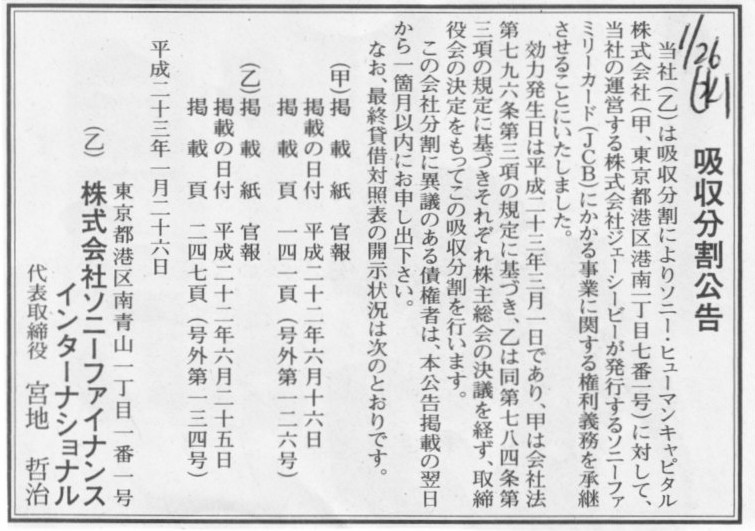 1/26
吸収分割公告
当社(乙)は吸収分割によりソニー・ヒューマンキャピタル
株式会社(甲、東京都港区港南一丁目七番一号)に対して、
当社の運営する株式会社ジェーシービーが発行するソニーファ
ミリーカード(JCB)にかかる事業に関する権利義務を承継
させることにいたしました。
効力発生日は平成二十三年三月一日であり、甲は会社法
第七九六条第三項の規定に基づき、乙は同第七八四条第
三項の規定に基づきそれぞれ株主総会の決議を経ず、取締
役会の決定をもってこの吸収分割を行います。
この会社分割に異議のある債権者は、本公告掲載の翌日
から一箇月以内にお申し出下さい。
なお、最終貸借対照表の開示状況は次のとおりです。
(甲)掲載紙 官報
掲載の日付 平成二十二年六月十六日
掲載頁 一四一頁(号外第一二六号)
(乙)掲載紙 官報
掲載の日付 平成二十二年六月二十五日
掲載頁 二四七頁(号外第一三四号)
平成二十三年一月二十六日
東京都港区南青山一丁目一番一号
(乙) 株式会社ソニーファイナンス
インターナショナル
代表取締役 宮地 哲治